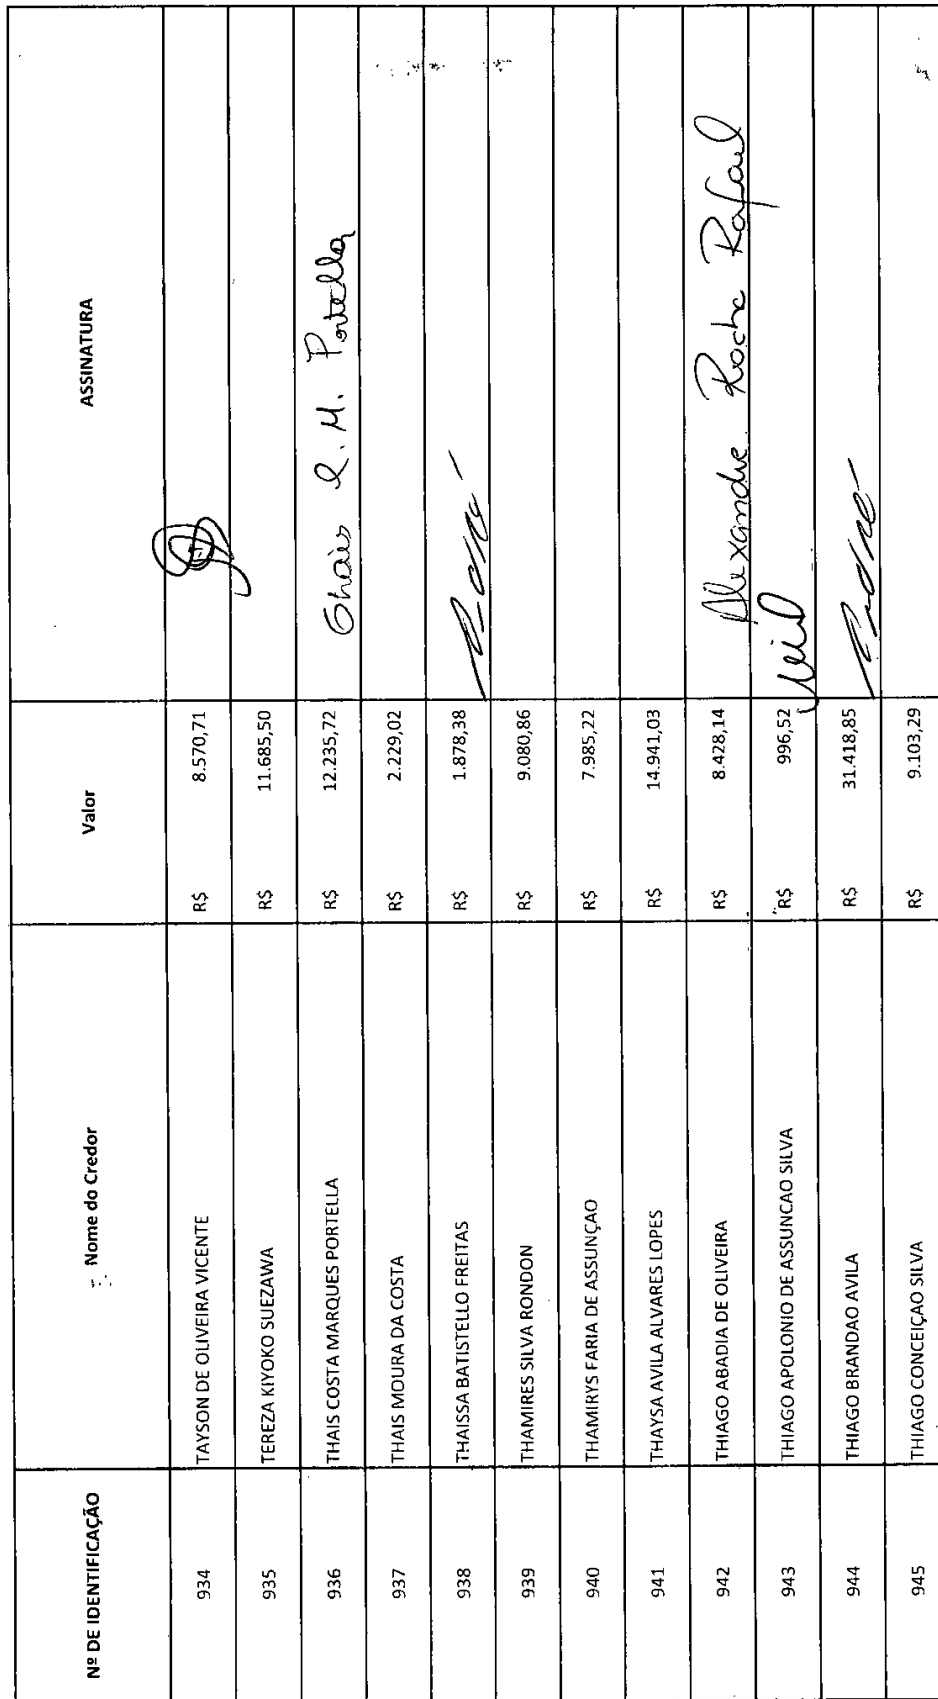 Nº DE IDENTIFICAÇÃO Nome do Credor Valor ASSINATURA
934 TAYSON DE OLIVEIRA VICENTE R$ 8.570,71
935 TEREZA KIYOKO SUEZAWA R$ 11.685,50
936 THAIS COSTA MARQUES PORTELLA R$ 12.235,72 Thais C. M. Portella
937 THAIS MOURA DA COSTA R$ 2.229,02
938 THAISSA BATISTELLO FREITAS R$ 1.878,38
939 THAMIRES SILVA RONDON R$ 9.080,86
940 THAMIRYS FARIA DE ASSUNÇAO R$ 7.985,22
941 THAYSA AVILA ALVARES LOPES R$ 14.941,03
942 THIAGO ABADIA DE OLIVEIRA R$ 8.428,14 Alexandre Rocha Rafael
943 THIAGO APOLONIO DE ASSUNCAO SILVA R$ 996,52
944 THIAGO BRANDAO AVILA R$ 31.418,85
945 THIAGO CONCEIÇAO SILVA R$ 9.103,29